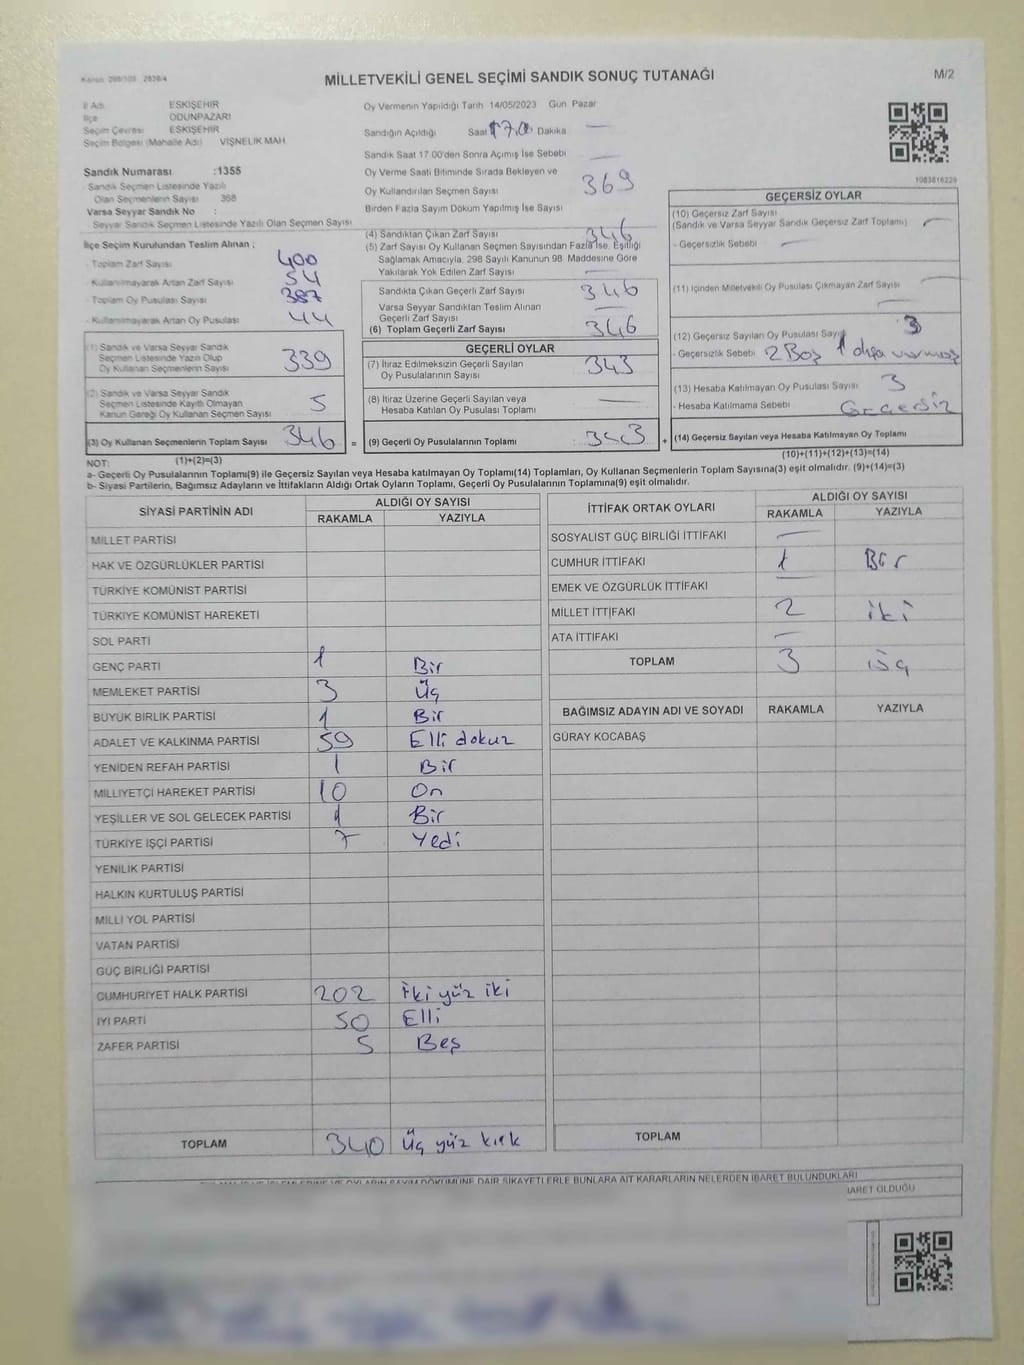 MİLLETVEKİLİ GENEL SEÇİMİ SANDIK SONUÇ TUTANAĞI
M/2
İl Adı ESKİŞEHİR
İlçe ODUNPAZARI
Seçim Çevresi ESKİŞEHİR
Seçim Bölgesi (Mahalle Adı) VİŞNELİK MAH
Sandık Numarası :1355
Sandık Seçmen Listesinde Yazılı
Olan Seçmenlerin Sayısı 368
Varsa Seyyar Sandık No :
Seyyar Sandık Seçmen Listesinde Yazılı Olan Seçmen Sayısı
İlçe Seçim Kurulundan Teslim Alınan ;
- Toplam Zarf Sayısı 400
- Kullanılmayarak Artan Zarf Sayısı 54
- Toplam Oy Pusulası Sayısı 387
- Kullanılmayarak Artan Oy Pusulası 44
(1) Sandık ve Varsa Seyyar Sandık
Seçmen Listesinde Yazılı Olup
Oy Kullanan Seçmenlerin Sayısı 339
(2) Sandık ve Varsa Seyyar Sandık
Seçmen Listesinde Kayıtlı Olmayan
Kanun Gereği Oy Kullanan Seçmen Sayısı 5
(3) Oy Kullanan Seçmenlerin Toplam Sayısı 346 =
Oy Vermenin Yapıldığı Tarih 14/05/2023 Gün Pazar
Sandığın Açıldığı Saat 17.00 Dakika —
Sandık Saat 17:00'den Sonra Açılmış İse Sebebi —
Oy Verme Saati Bitiminde Sırada Bekleyen ve
Oy Kullandırılan Seçmen Sayısı 369
Birden Fazla Sayım Döküm Yapılmış İse Sayısı
(4) Sandıktan Çıkan Zarf Sayısı 346
(5) Zarf Sayısı Oy Kullanan Seçmen Sayısından Fazla İse, Eşitliği
Sağlamak Amacıyla, 298 Sayılı Kanunun 98 Maddesine Göre
Yakılarak Yok Edilen Zarf Sayısı —
Sandıkta Çıkan Geçerli Zarf Sayısı 346
Varsa Seyyar Sandıktan Teslim Alınan
Geçerli Zarf Sayısı —
(6) Toplam Geçerli Zarf Sayısı 346
GEÇERLİ OYLAR
(7) İtiraz Edilmeksizin Geçerli Sayılan
Oy Pusulalarının Sayısı 343
(8) İtiraz Üzerine Geçerli Sayılan veya
Hesaba Katılan Oy Pusulası Toplamı —
(9) Geçerli Oy Pusulalarının Toplamı 343 +
1083816229
GEÇERSİZ OYLAR
(10) Geçersiz Zarf Sayısı
(Sandık ve Varsa Seyyar Sandık Geçersiz Zarf Toplamı) —
- Geçersizlik Sebebi —
(11) İçinden Milletvekili Oy Pusulası Çıkmayan Zarf Sayısı —
(12) Geçersiz Sayılan Oy Pusulası Sayısı 3
- Geçersizlik Sebebi 2 Boş 1 dışa vurmuş
(13) Hesaba Katılmayan Oy Pusulası Sayısı 3
- Hesaba Katılmama Sebebi Geçersiz
(14) Geçersiz Sayılan veya Hesaba Katılmayan Oy Toplamı
(1)+(2)=(3)
(10)+(11)+(12)+(13)=(14)
NOT:
a- Geçerli Oy Pusulalarının Toplamı(9) ile Geçersiz Sayılan veya Hesaba katılmayan Oy Toplamı(14) Toplamları, Oy Kullanan Seçmenlerin Toplam Sayısına(3) eşit olmalıdır. (9)+(14)=(3)
b- Siyasi Partilerin, Bağımsız Adayların ve İttifakların Aldığı Ortak Oyların Toplamı, Geçerli Oy Pusulalarının Toplamına(9) eşit olmalıdır.
SİYASİ PARTİNİN ADI ALDIĞI OY SAYISI
RAKAMLA YAZIYLA
MİLLET PARTİSİ
HAK VE ÖZGÜRLÜKLER PARTİSİ
TÜRKİYE KOMÜNİST PARTİSİ
TÜRKİYE KOMÜNİST HAREKETİ
SOL PARTİ
GENÇ PARTİ 1 Bir
MEMLEKET PARTİSİ 3 Üç
BÜYÜK BİRLİK PARTİSİ 1 Bir
ADALET VE KALKINMA PARTİSİ 59 Elli dokuz
YENİDEN REFAH PARTİSİ 1 Bir
MİLLİYETÇİ HAREKET PARTİSİ 10 On
YEŞİLLER VE SOL GELECEK PARTİSİ 1 Bir
TÜRKİYE İŞÇİ PARTİSİ 7 Yedi
YENİLİK PARTİSİ
HALKIN KURTULUŞ PARTİSİ
MİLLİ YOL PARTİSİ
VATAN PARTİSİ
GÜÇ BİRLİĞİ PARTİSİ
CUMHURİYET HALK PARTİSİ 202 İki yüz iki
İYİ PARTİ 50 Elli
ZAFER PARTİSİ 5 Beş
TOPLAM 340 Üç yüz kırk
İTTİFAK ORTAK OYLARI ALDIĞI OY SAYISI
RAKAMLA YAZIYLA
SOSYALİST GÜÇ BİRLİĞİ İTTİFAKI —
CUMHUR İTTİFAKI 1 Bir
EMEK VE ÖZGÜRLÜK İTTİFAKI —
MİLLET İTTİFAKI 2 iki
ATA İTTİFAKI —
TOPLAM 3 üç
BAĞIMSIZ ADAYIN ADI VE SOYADI RAKAMLA YAZIYLA
GÜRAY KOCABAŞ
TOPLAM
DÖKÜMÜNE DAİR ŞİKAYETLERLE BUNLARA AİT KARARLARIN NELERDEN İBARET BULUNDUKLARI
İBARET OLDUĞU